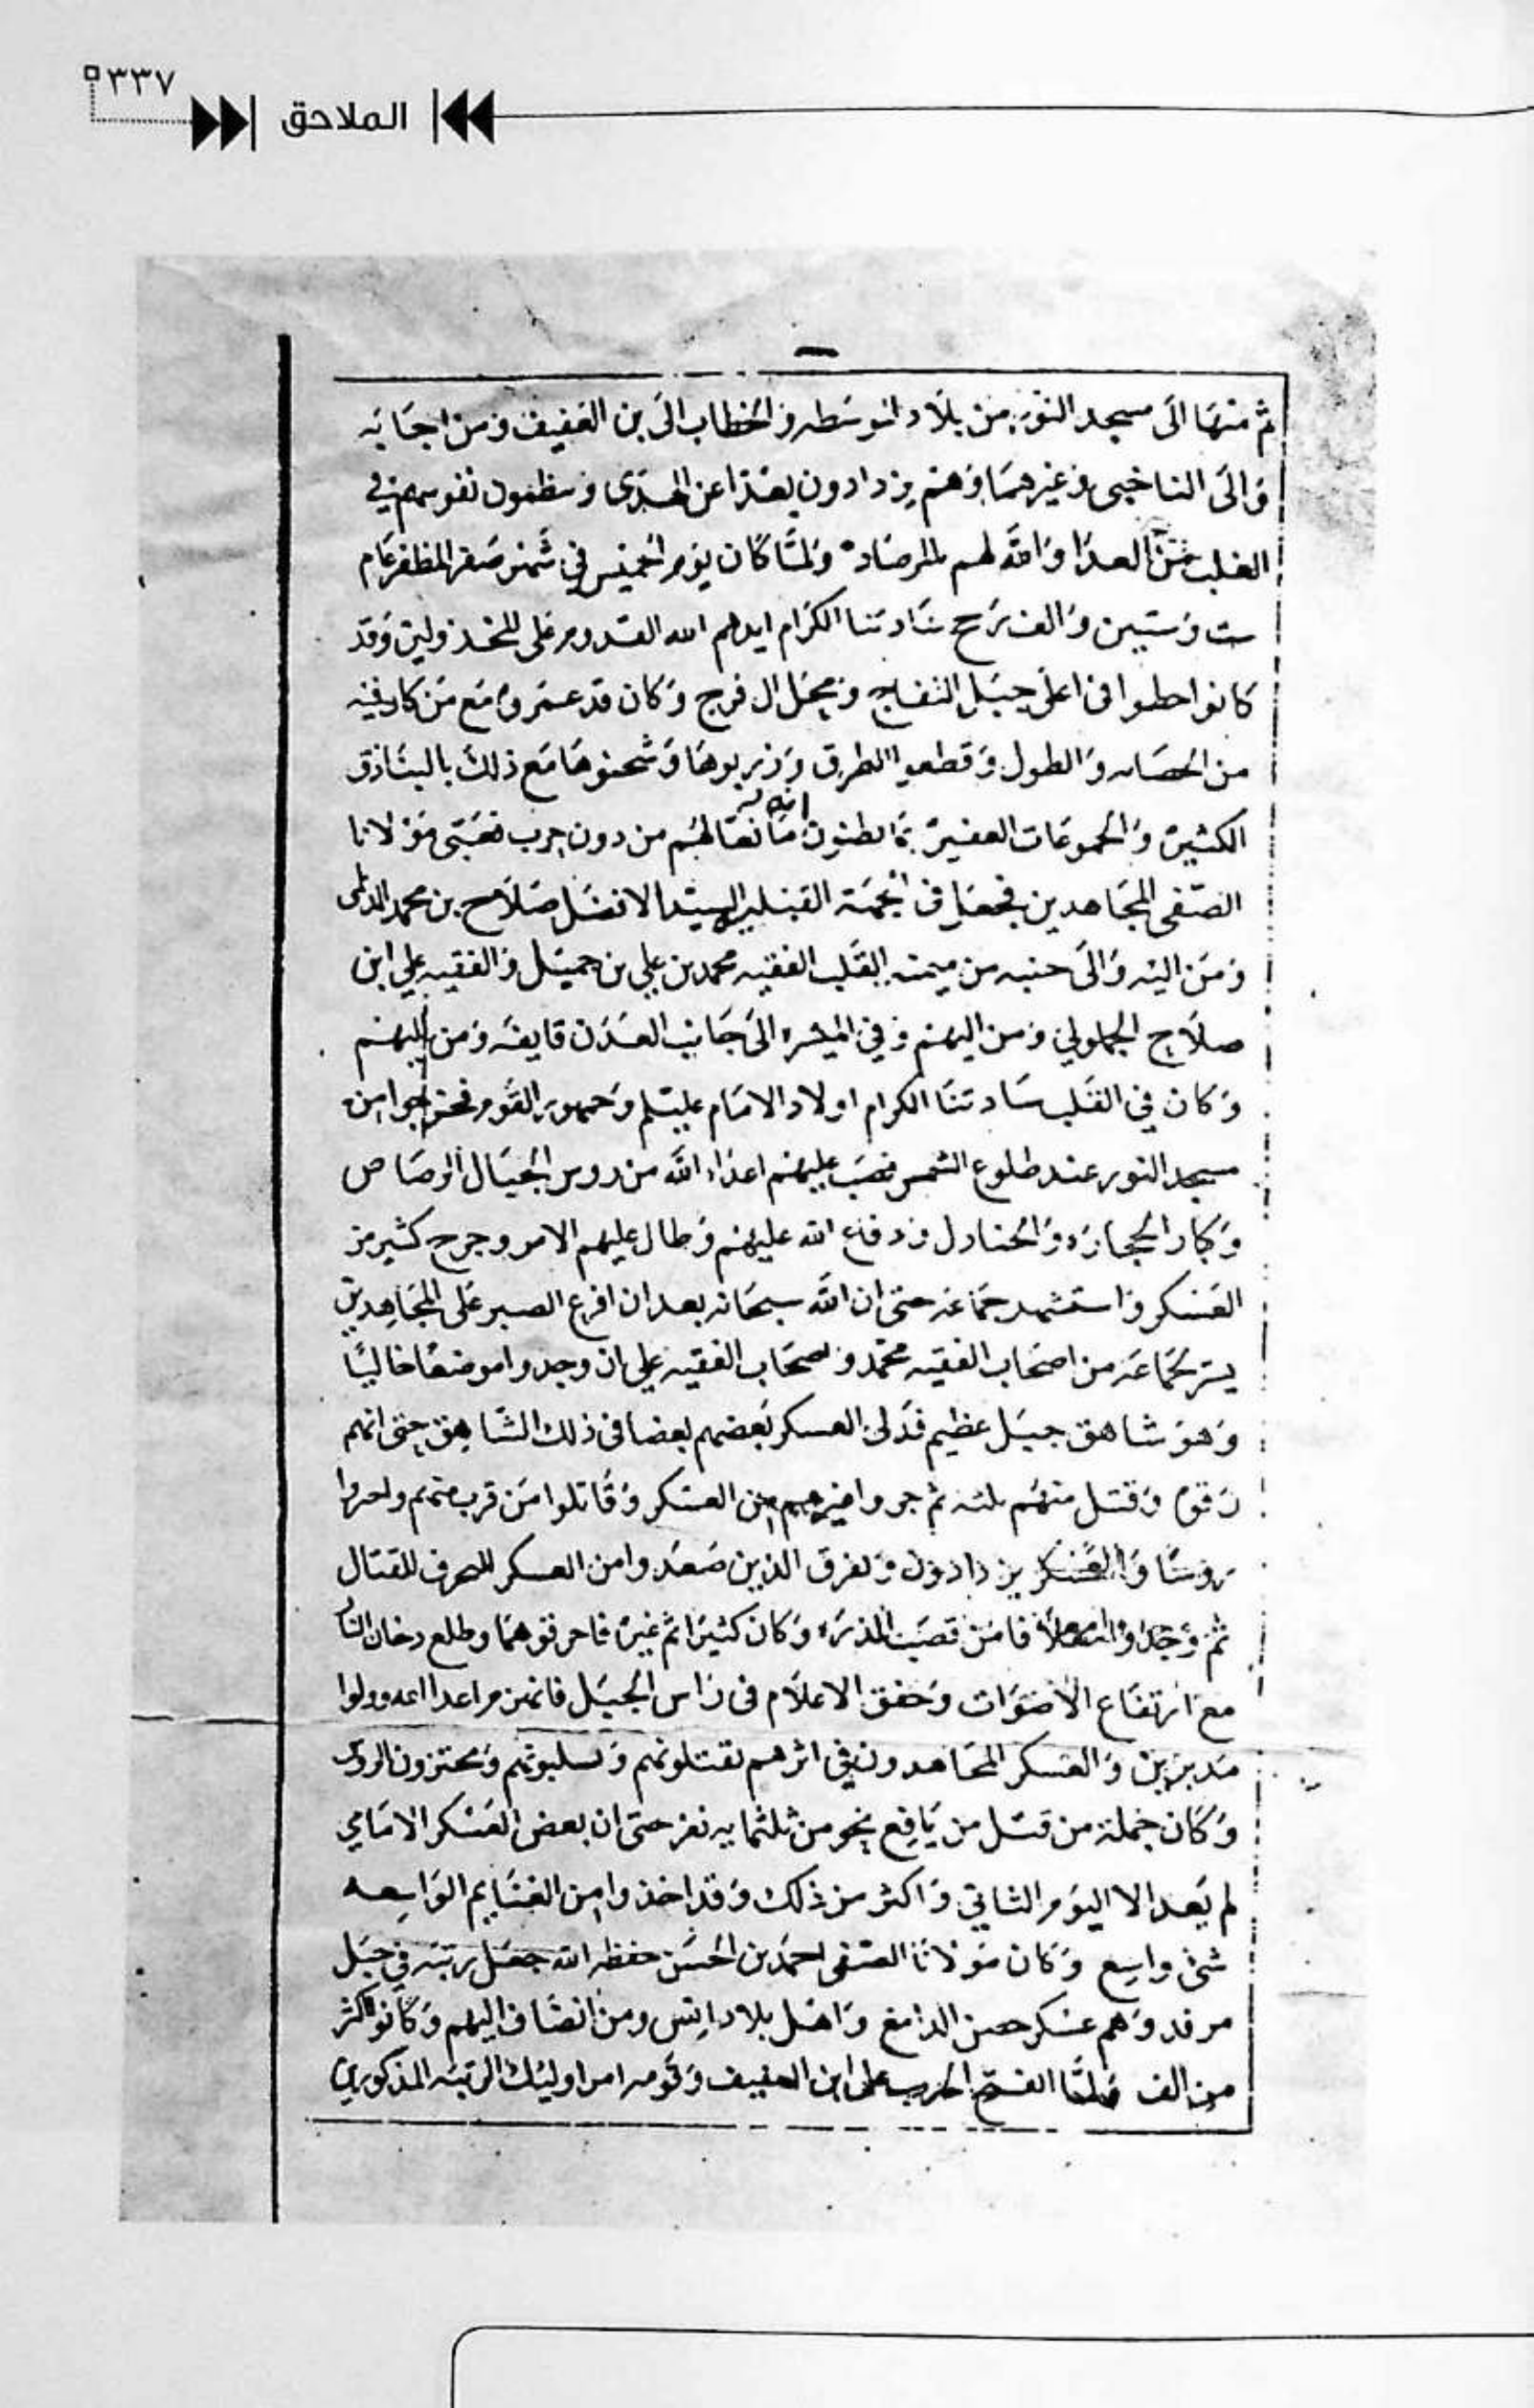 ٣٣٧
الملاحق
ثم منها الى مسجد النور من بلاد الموسطه والخطاب الى بن العفيف ومن اجابه
والى الناخبي وغيرهما وهم يزدادون بعدا عن الهدى نفوسهم في
الغلب العدا والله لهم بالمرصاد ولما كان يوم الخميس في شهر صفر المظفر عام
ست وستين والف رجح سادتنا الكرام ايدهم الله القدوم على المخذولين وقد
كانوا احطوا في اعلى جبل ومحل ال فرج وكان قد عمروه مع من كان فيه
من والطول وقطعوا الطرق وزربوها وشحنوها مع ذلك بالبنادق
الكثيره والجموعات بما يظنون انه مانعا لهم من دون حرب فعبى مولانا
الصفي المجاهدين فجعل في الجهة القبليه السيد الافضل صلاح بن محمد
ومن اليه والى جنبه من ميمنه القلب الفقيه محمد بن علي بن جميل والفقيه علي ابن
صلاح الجملولي ومن اليهم وفي الميسره الى جانب العدن قايفه ومن اليهم
وكان في القلب سادتنا الكرام اولاد الامام عليلم وجمهور القوم فخرجوا من
مسجد النور عند طلوع الشمس فصب عليهم اعداء الله من روس الجبال الرصاص
وكبار الحجاره والجنادل ودفاع الله عليهم وطال عليهم الامر وجرح كثير من
العسكر واستشهد جماعه حتى ان الله سبحانه بعد ان افرغ الصبر على المجاهدين
يسر لجماعه من اصحاب الفقيه محمد واصحاب الفقيه علي ان وجدوا موضعا خاليا
وهو شاهق جبل عظيم فدلى العسكر بعضهم بعضا في ذلك الشاهق حتى انهم
رقوه وقتل منهم ثلثه ثم جروا غيرهم من العسكر وقاتلوا من قرب منهم واحزوا
روسا والعسكر يزدادون وتفرق الذين صعدوا من العسكر للقتال
ثم وجدوا من قصب الذره وكان كثيرا ثم غيره فاحرقوهما وطلع دخان النار
مع ارتفاع الاصوات وخفق الاعلام في راس الجبل فانهزم اعدا الله وولوا
مدبرين والعسكر المجاهدون في اثرهم يقتلونهم ويسلبونهم ويحتزون الروس
وكان جملة من قتل من يافع نحو من ثلثمايه نفر حتى ان بعض العسكر الامامي
لم يعد الا اليوم الثاني واكثر من ذلك وقد اخذوا من الغنايم الواسعه
شئ واسع وكان مولانا الصفي احمد بن الحسن حفظه الله جعل رتبه في جبل
مرفد وهم عسكر حصن الدامغ واهل بلاد انس ومن انضاف اليهم وكانوا اكثر
من الف ولما الفتح الحرب على ابن العفيف وقومه امر اوليك الرتبه المذكورين